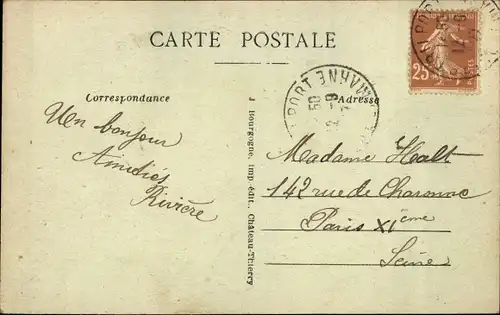 CARTE POSTALE
Correspondance
Adresse
25
Un bonjour
Rivière
J. Bourgogne, imp.-édit., Château-Thierry
PORT MARNE
Madame Halt
142 rue de Charonne
Paris XIeme
Seine